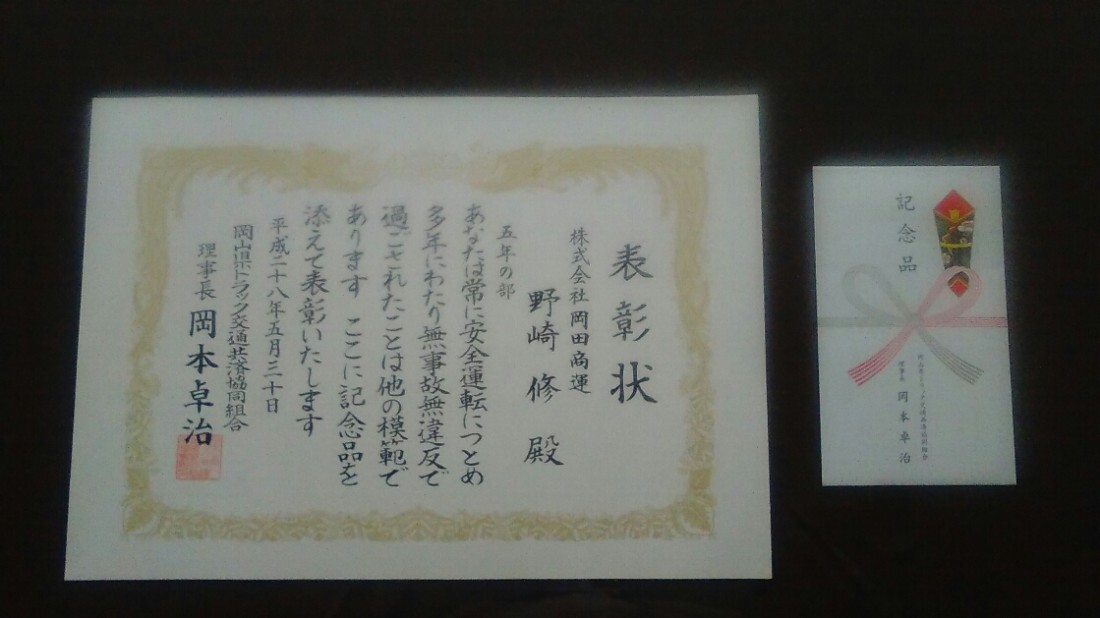 表彰状
株式会社岡田商運
野崎修殿
五年の部
あなたは常に安全運転につとめ
多年にわたり無事故無違反で
過ごされたことは他の模範で
あります ここに記念品を
添えて表彰いたします
平成二十八年五月三十日
岡山県トラック交通共済協同組合
理事長 岡本卓治
記念品
岡山県トラック交通共済協同組合
理事長 岡本卓治